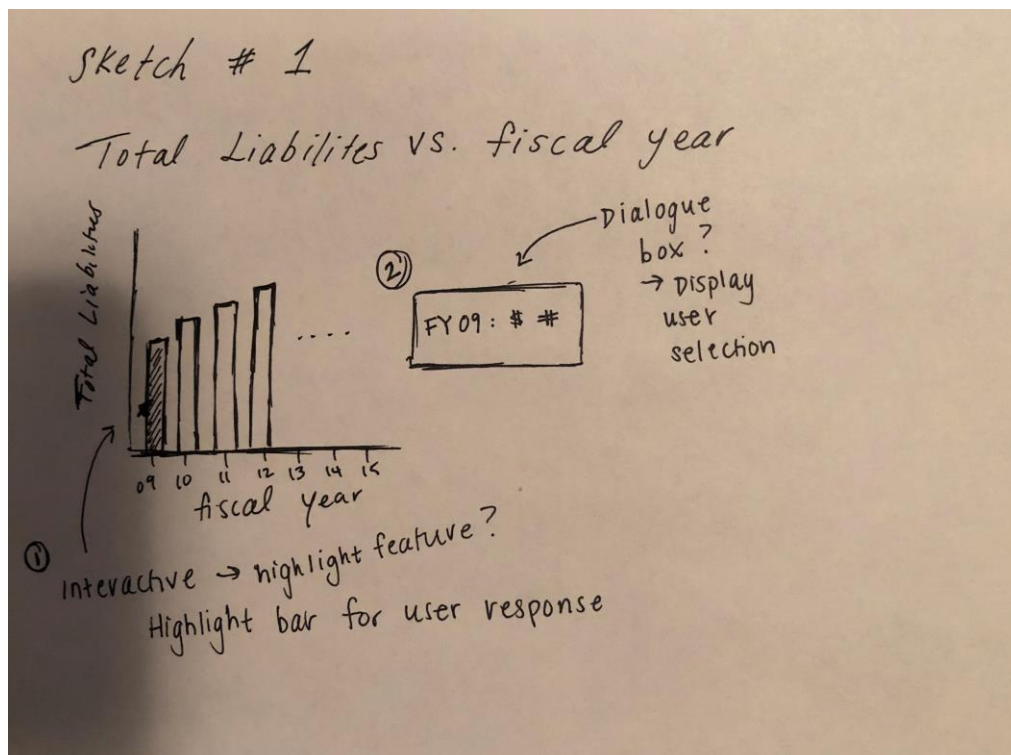 Sketch # 1
Total Liabilites vs. fiscal year
Total Liabilities
09 10 11 12 13 14 15
fiscal year
②
FY 09 : $ #
Dialogue
box ?
→ Display
user
selection
①
Interactive → highlight feature?
Highlight bar for user response